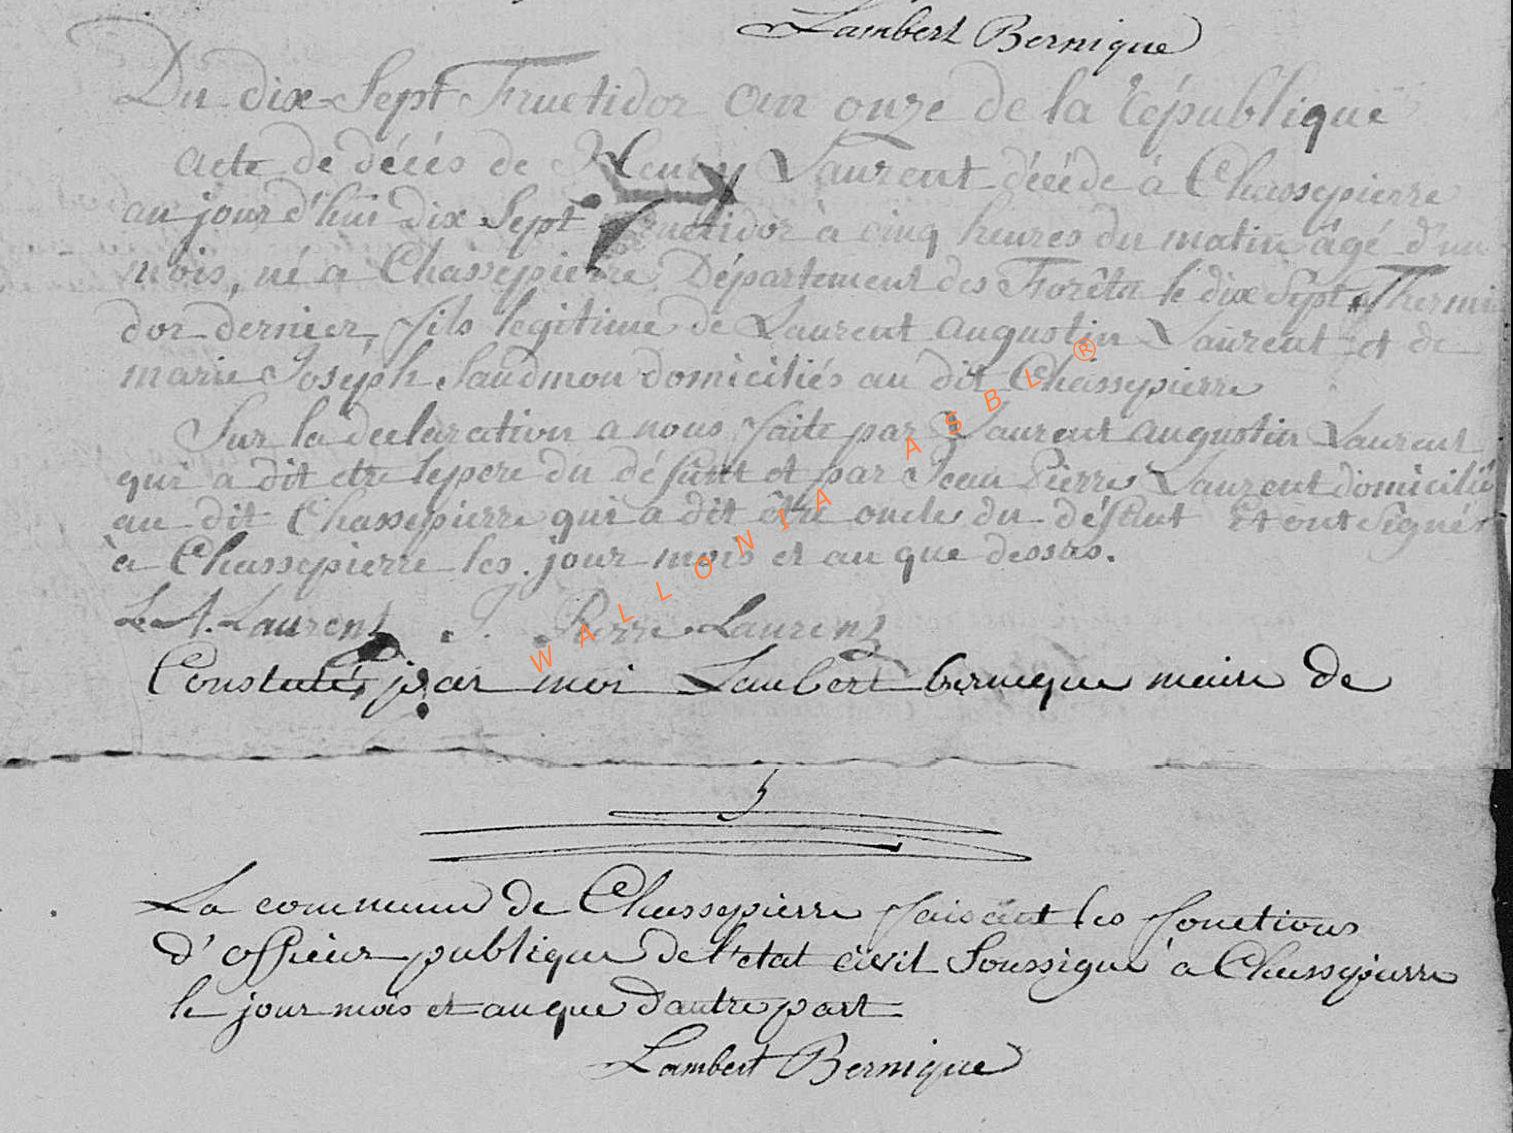 Lambert Bernique
Du dix Sept Fructidor an onze de la République
acte de décés de Henry Laurent décédé à Chassepierre
aujourd'hui dix Sept Fructidor à cinq heures du matin âgé d'un
mois, né a Chassepierre, Département des Forêts le dix Sept Thermi
dor dernier, fils legitime de Laurent augustin Laurent et de
marie Joseph Saudmon domiciliés au dit Chassepierre
Sur la declaration a nous faite par Laurent augustin Laurent
qui a dit etre le pere du défunt et par Jean Pierre Laurent domicilié
au dit Chassepierre qui a dit être oncle du défunt Et ont Signés
à Chassepierre les jour mois et an que dessus.
L. A. Laurent J. Pierre Laurent
Constaté, par moi Lambert bernique maire de
5
La commune de Chassepierre faisant les fonctions
d'officier publique de l'etat civil Soussigné à Chassepierre
le jour mois et an que d'autre part
Lambert Bernique
WALLONIA ASBL ®